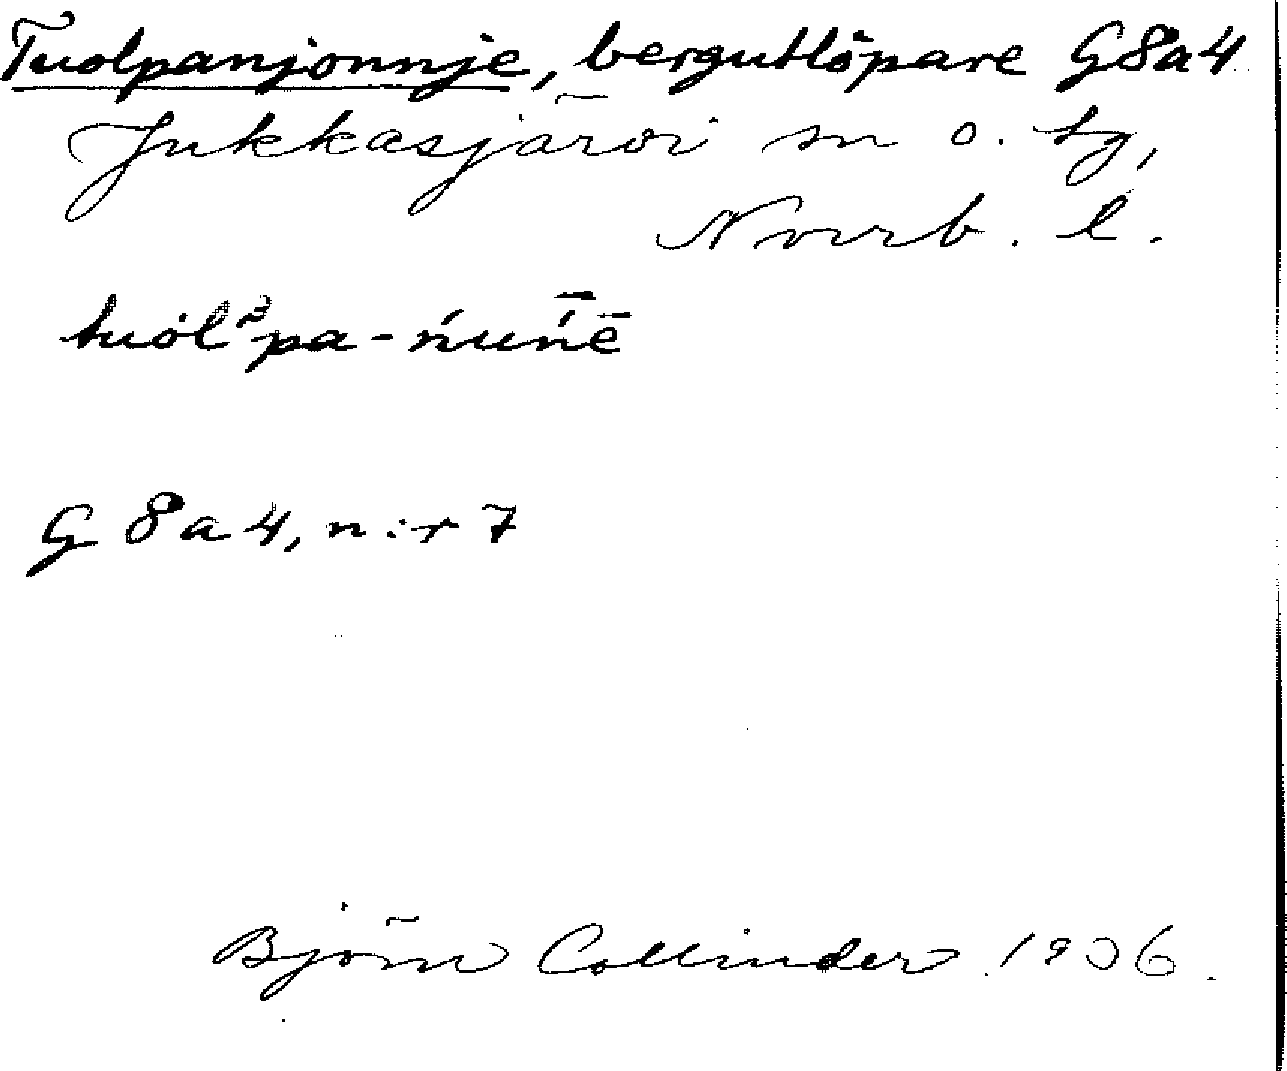 Tuolpanjonnje, bergutlöpare G8a4
Jukkasjärvi sn o. tg,
Norrb. l.
tuol²pa-ńuńē
G 8a4, n:r 7
Björn Collinder 1936.